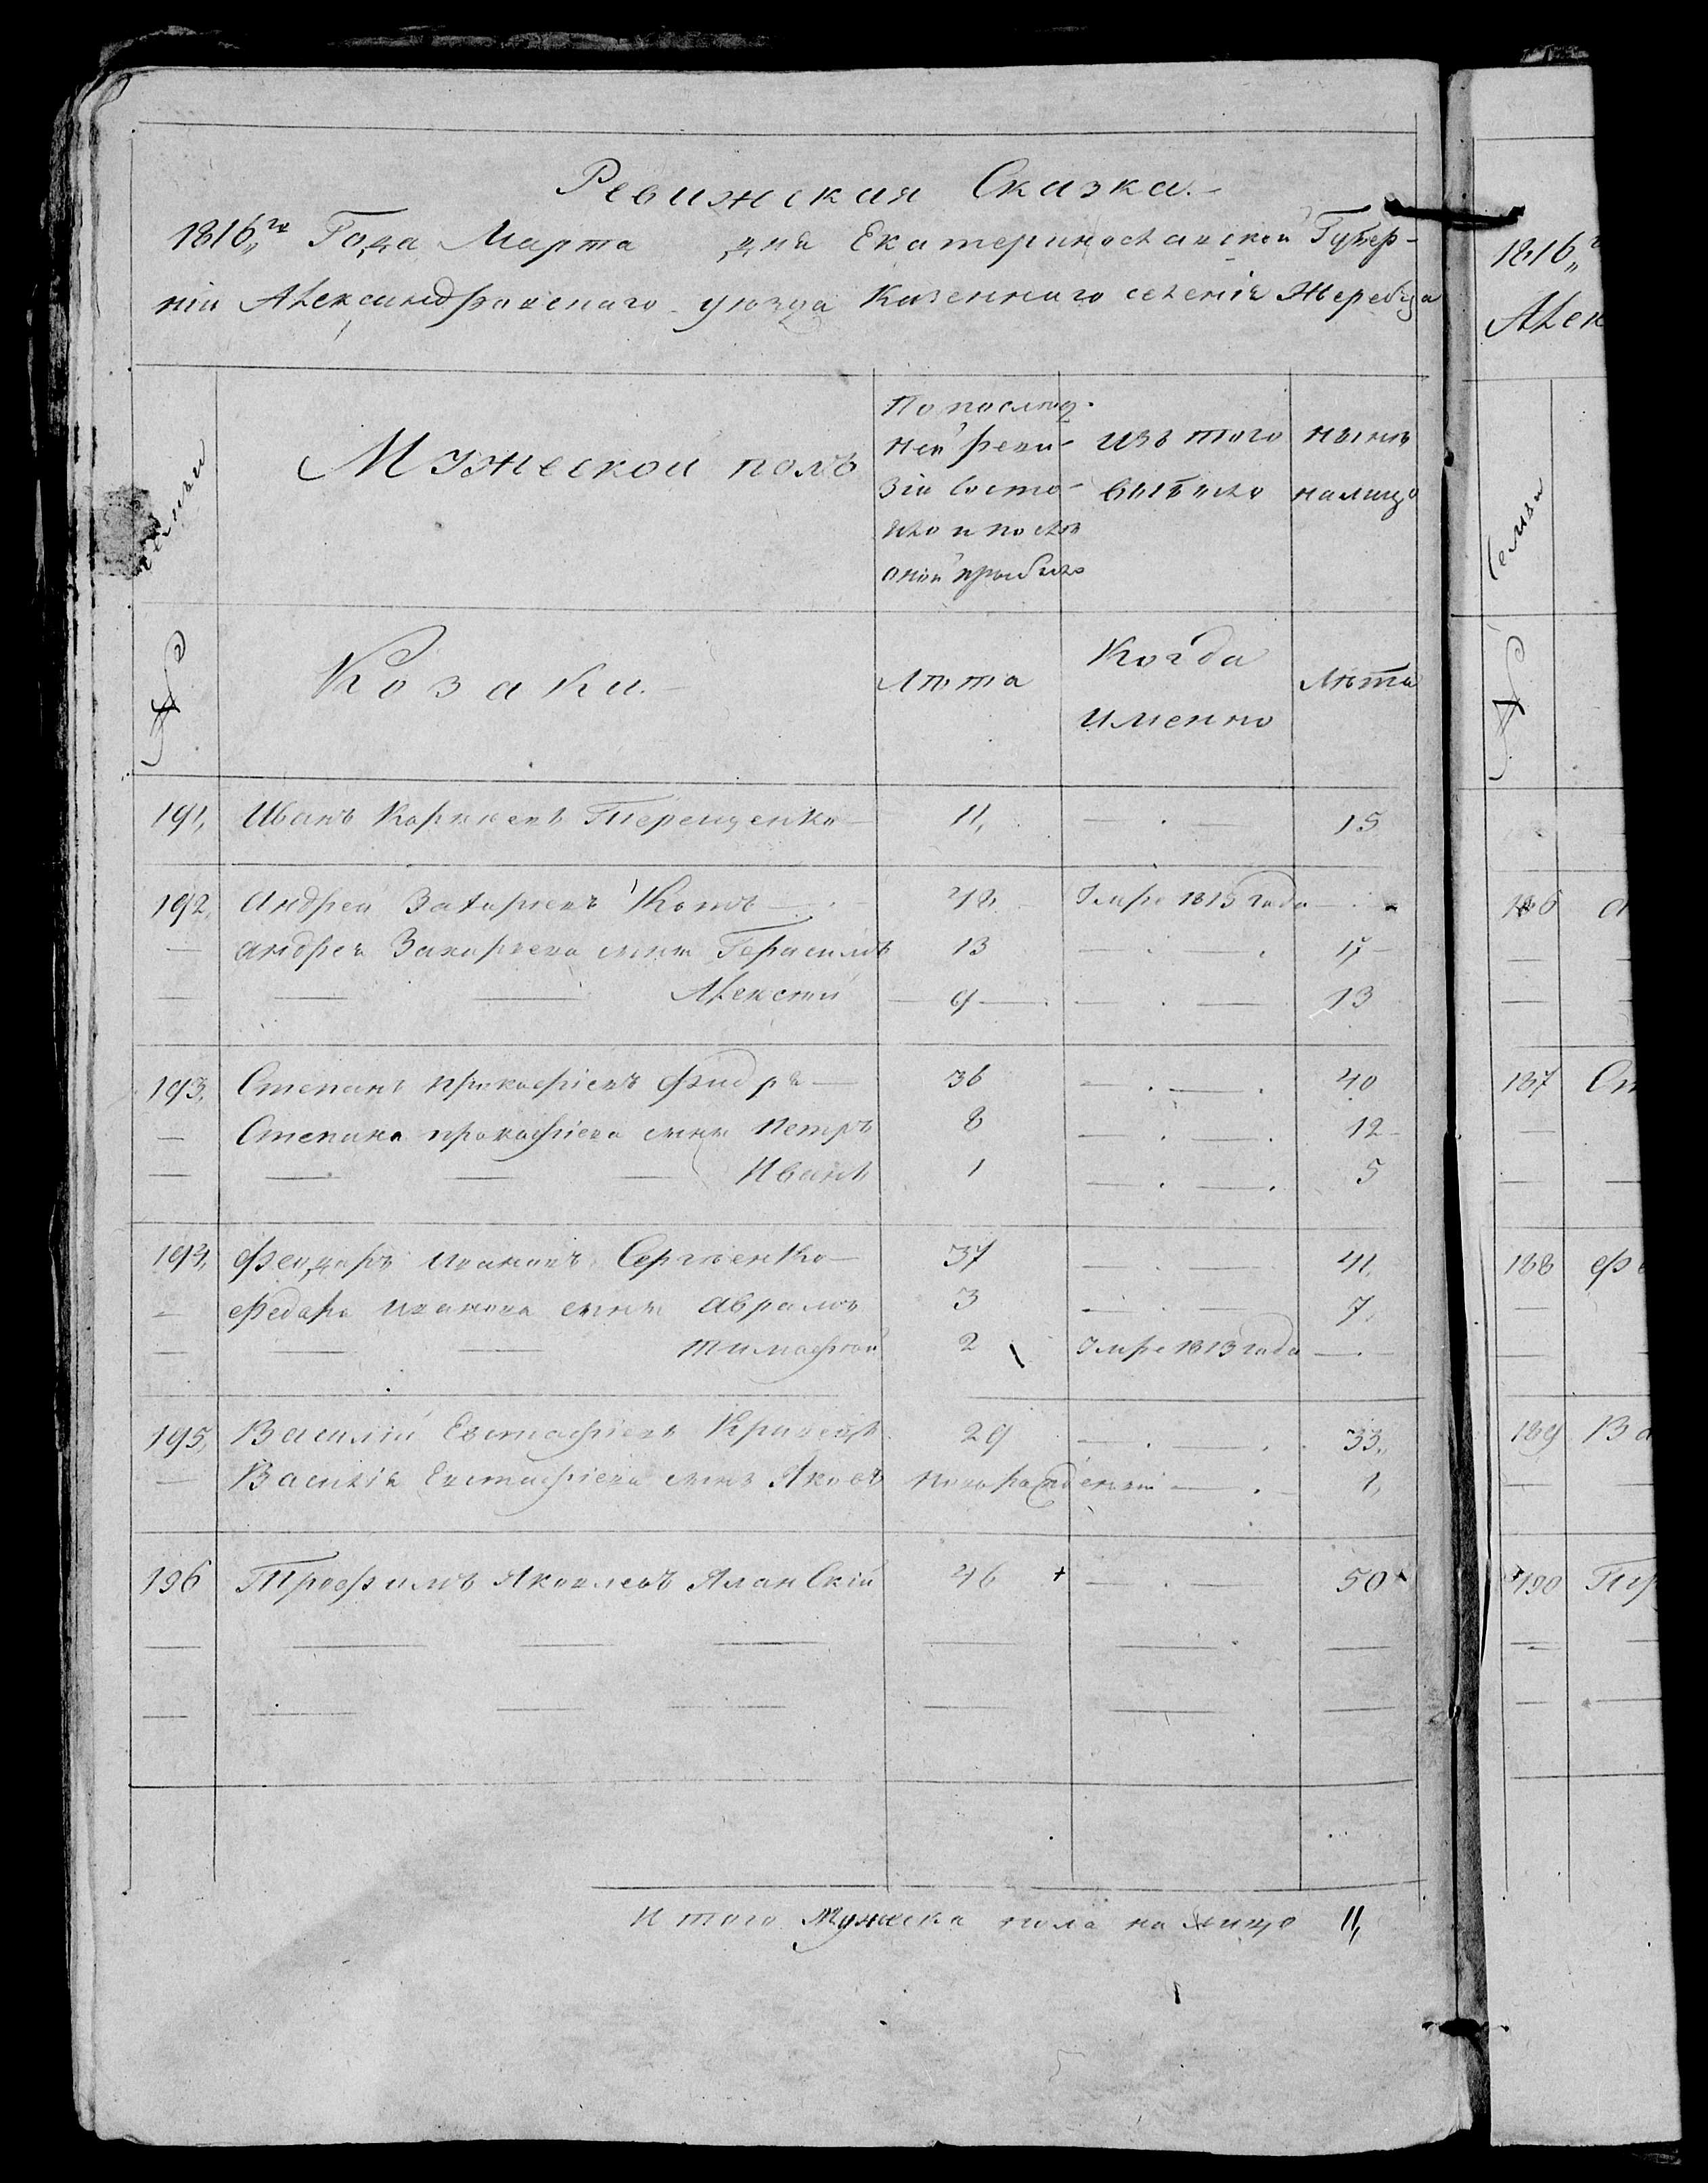 Ревижская Сказка.
1816го Года Марта дня Екатеринославской Губер-
ніи Александровскаго уѣзда Казеннаго селенія Жеребца
Мужеской полъ
По послѣд-
ней реви-
зіи состо-
яло и послѣ
оной прибыло
изъ того
выбыло
нынѣ
налицо
семьи
№
Козаки.
Лѣта
Когда
именно
Лѣта
191, Иванъ Корнеевъ Терещенко 11, — . — 15
192, Андрей Захарьевъ Котъ 48 Умре 1815 года — .
— Андрея Захарьева сынъ Герасимъ 13 — . — . 17
— — — Алексѣй 9 — . — 13
193, Степанъ Прокофіевъ 36 — . — . 40
— Степана Прокофіева сынъ Петръ 8 — . — . 12
— — — — Иванъ 1 — . — . 5
194, Феодоръ Ивановъ Сергѣенко 37 — . — 41,
— Федора Иванова сынъ Аврамъ 3 — . — 7,
— — — Тимофѣй 2 Умре 1813 года — .
195, Василій Евстафіевъ Кравецъ 29 — . — . 33,
— Василія Евстафіева сынъ Яковъ новорожденный — . 1,
196 Трофимъ Яковлевъ 46 + — . — 50
Итого Мужеска пола на лицо 11,
1816
Алек
семьи
№
186 А
187 Ст
188 Фе
189 Ва
190 Тр